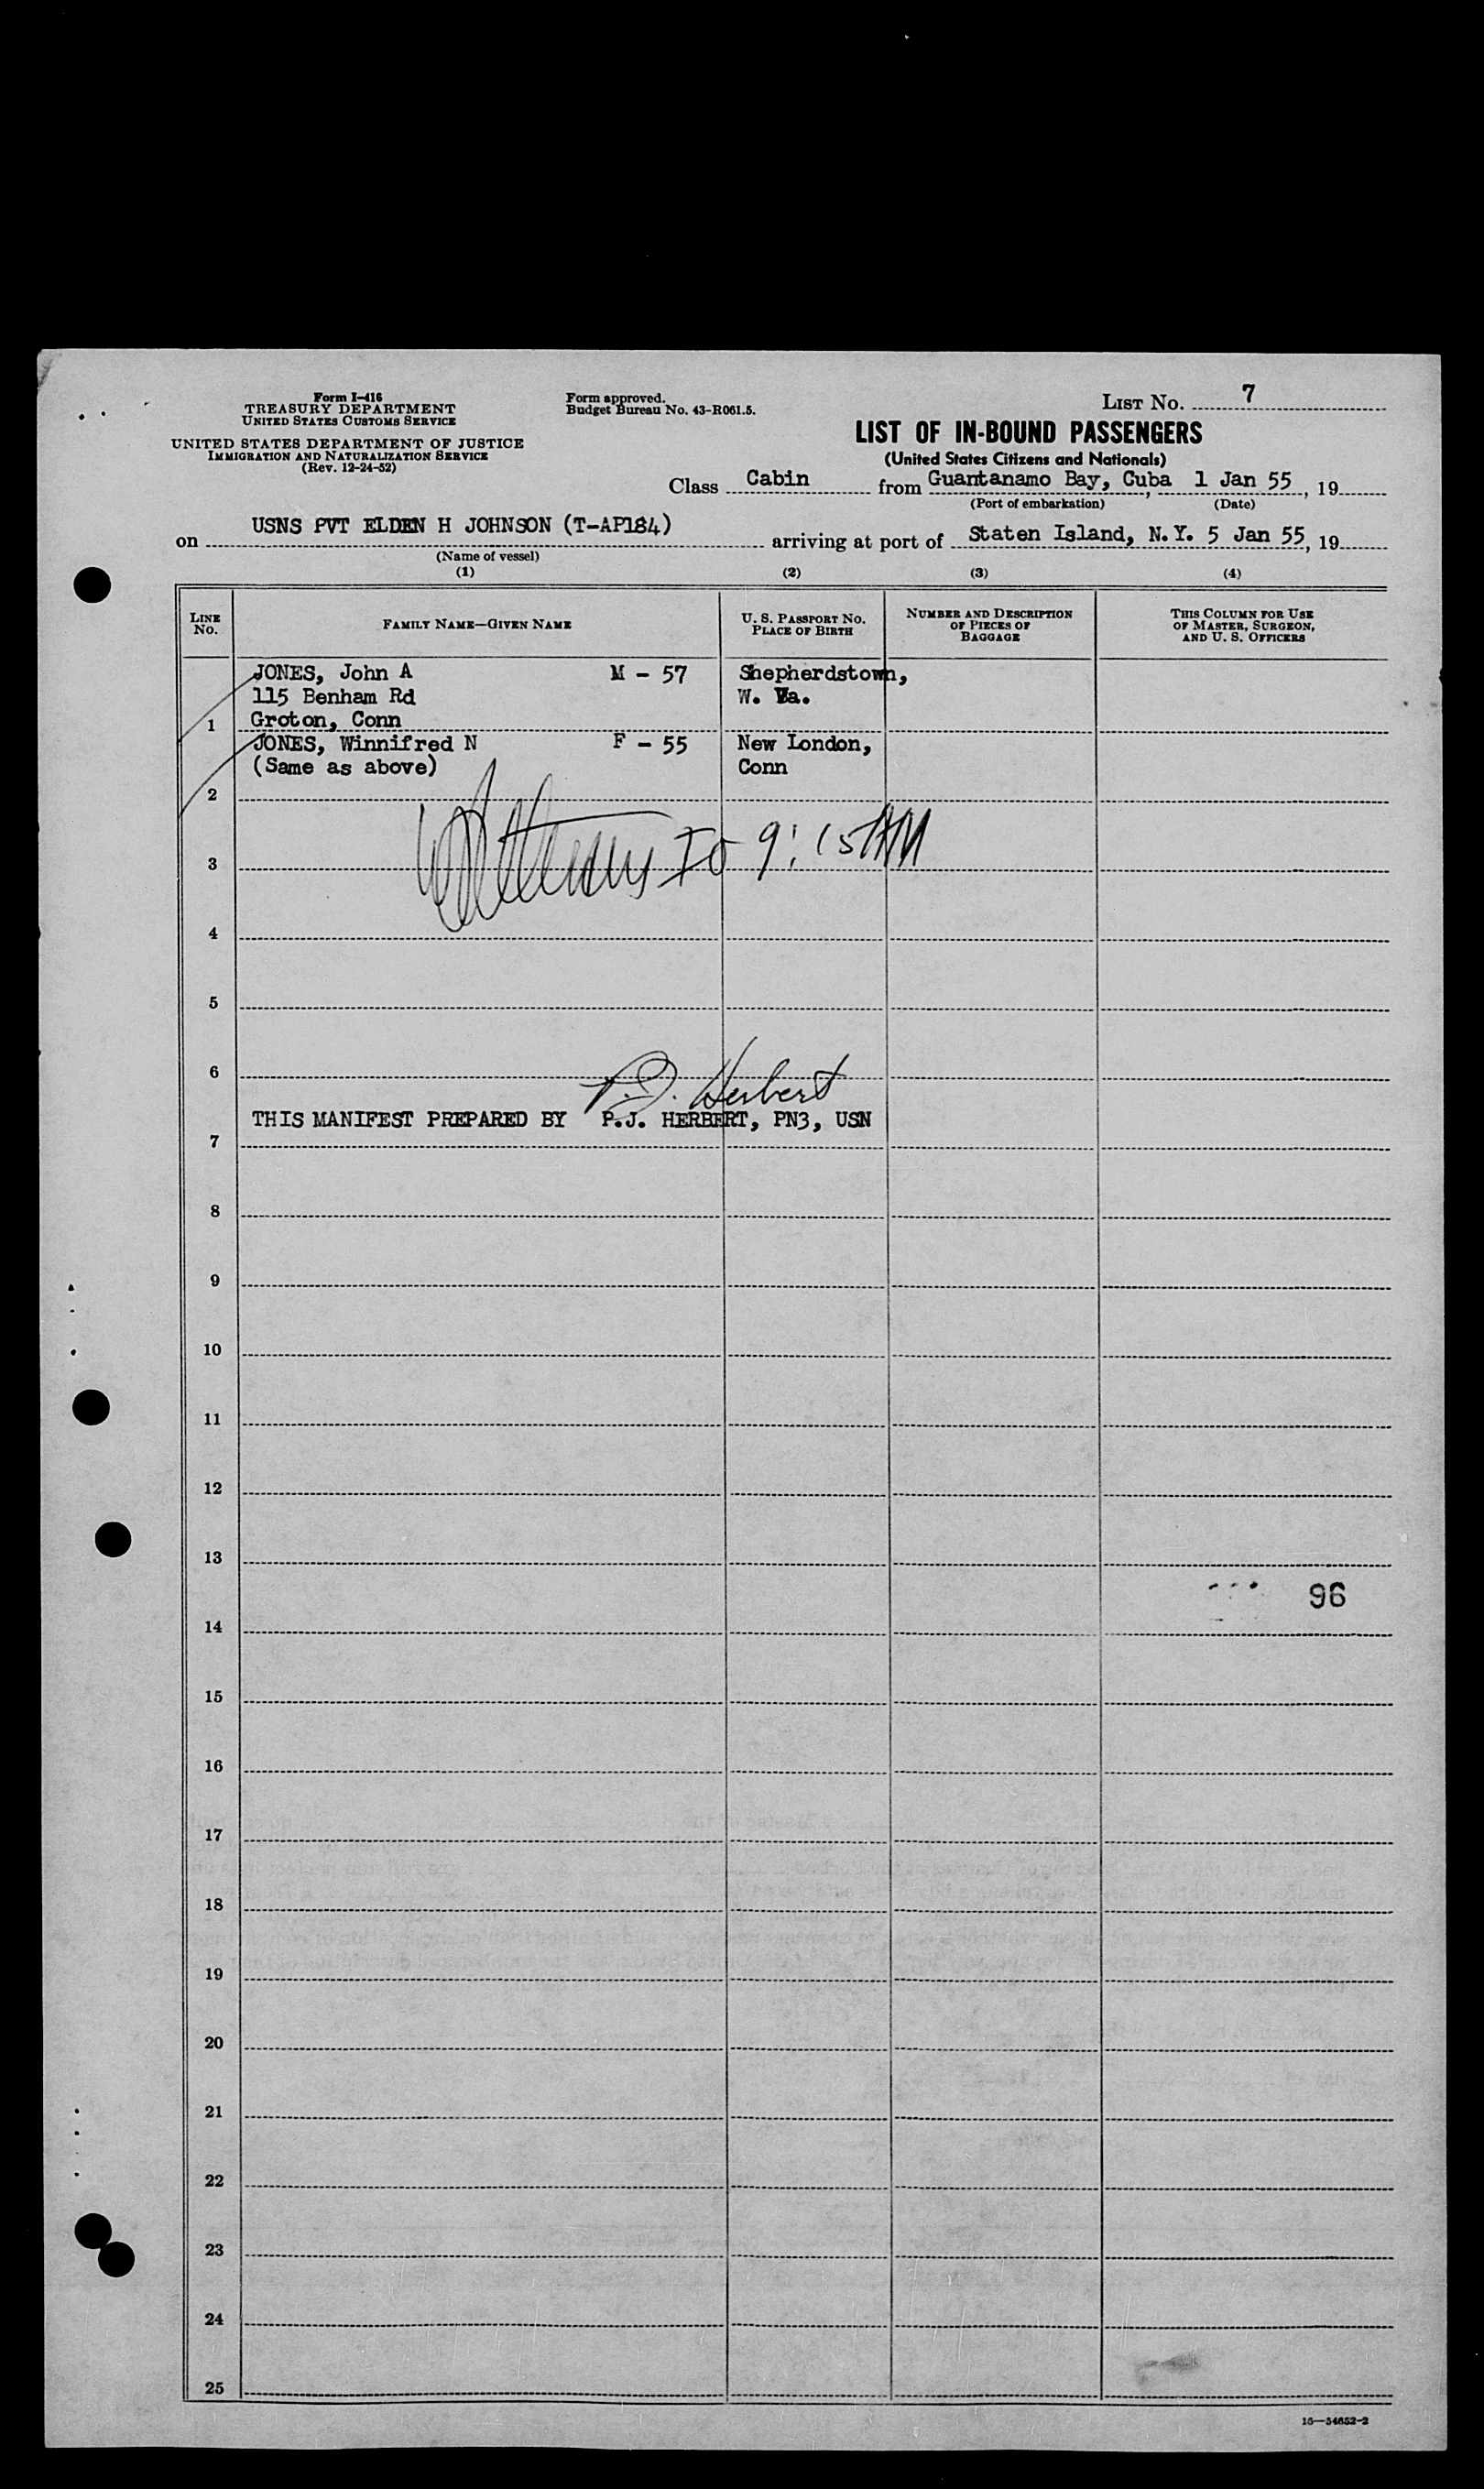 Form I-416
TREASURY DEPARTMENT
UNITED STATES CUSTOMS SERVICE
UNITED STATES DEPARTMENT OF JUSTICE
IMMIGRATION AND NATURALIZATION SERVICE
(Rev. 12-24-52)
Form approved.
Budget Bureau No. 43-R061.5.
LIST NO. 7
LIST OF IN-BOUND PASSENGERS
(United States Citizens and Nationals)
Class Cabin from Guantanamo Bay, Cuba, 1 Jan 55, 19
(Port of embarkation) (Date)
on USNS PVT ELDEN H JOHNSON (T-AP184) arriving at port of Staten Island, N.Y. 5 Jan 55, 19
(Name of vessel)
(1) (2) (3) (4)
LINE NO. FAMILY NAME—GIVEN NAME U. S. PASSPORT NO. PLACE OF BIRTH NUMBER AND DESCRIPTION OF PIECES OF BAGGAGE THIS COLUMN FOR USE OF MASTER, SURGEON, AND U. S. OFFICERS
JONES, John A M - 57 Shepherdstown,
115 Benham Rd W. Va.
1 Groton, Conn
JONES, Winnifred N F - 55 New London,
(Same as above) Conn
2
9:15 AM
3
4
5
6
P.J. Herbert
THIS MANIFEST PREPARED BY P.J. HERBERT, PN3, USN
7
8
9
10
11
12
13
96
14
15
16
17
18
19
20
21
22
23
24
25
16—54652-2